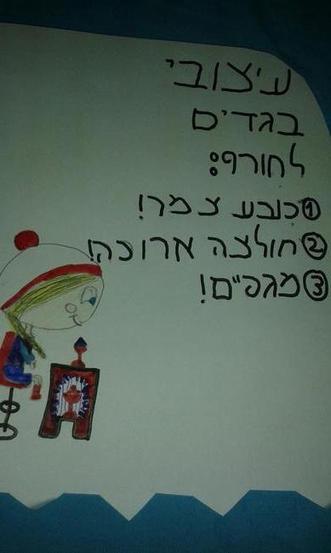 עיצובי
בגדים
לחורף:
1 כובע צמר!
2 חולצה ארוכה!
3 מגפיים!